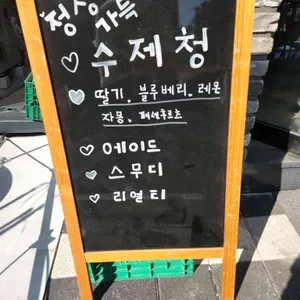 정성
가득
수제청
딸기. 블루베리. 레몬
자몽. 패션후르츠
에이드
스무디
리얼티